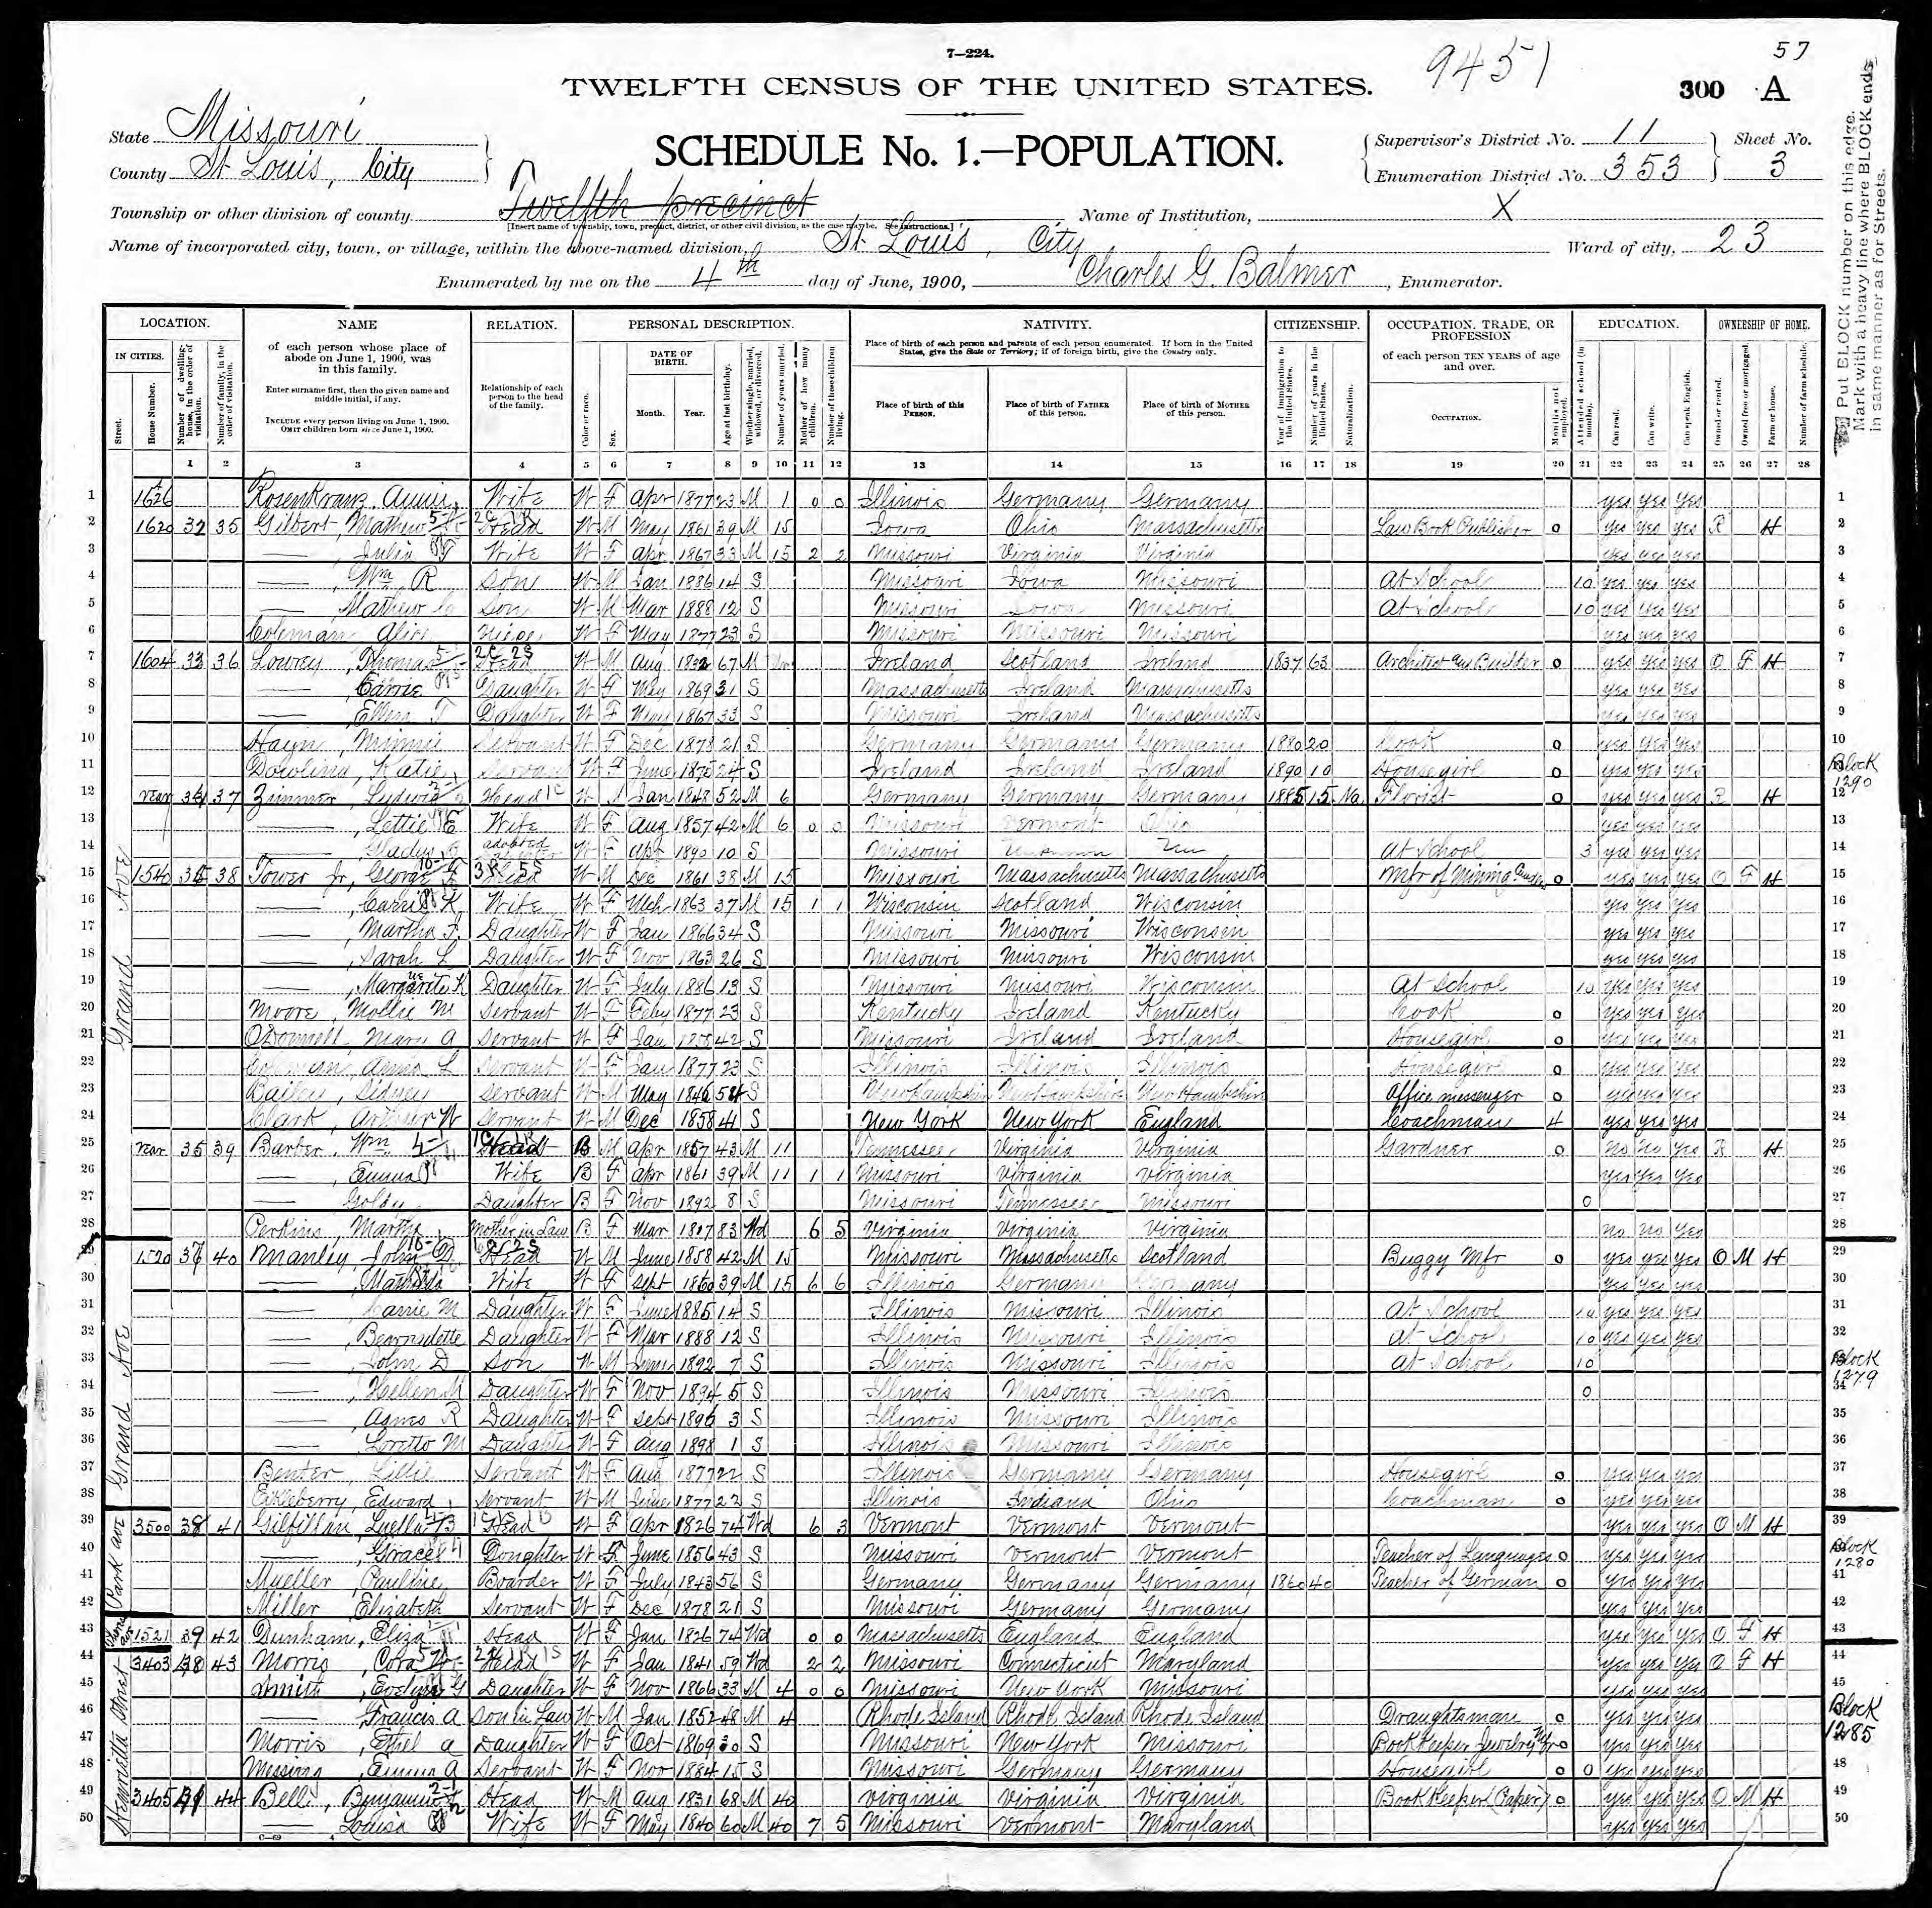 7—224.
9451
57
TWELFTH CENSUS OF THE UNITED STATES.
300 A
State Missouri
County St Louis, City
SCHEDULE No. 1.—POPULATION.
Supervisor's District No. 11
Enumeration District No. 353
Sheet No. 3
Township or other division of county Twelfth precinct
[Insert name of township, town, precinct, district, or other civil division, as the case may be. See instructions.]
Name of Institution, X
Name of incorporated city, town, or village, within the above-named division, St. Louis, City
Ward of city, 23
Enumerated by me on the 4th day of June, 1900, Charles G. Balmer, Enumerator.
Put BLOCK number on this edge.
Mark with a heavy line where BLOCK ends
in same manner as for Streets.
LOCATION. NAME RELATION. PERSONAL DESCRIPTION. NATIVITY. CITIZENSHIP. OCCUPATION, TRADE, OR PROFESSION EDUCATION. OWNERSHIP OF HOME.
IN CITIES.
Street.
House Number.
Number of dwelling-house, in the order of visitation.
Number of family, in the order of visitation.
of each person whose place of abode on June 1, 1900, was in this family.
Enter surname first, then the given name and middle initial, if any.
INCLUDE every person living on June 1, 1900.
OMIT children born since June 1, 1900.
Relationship of each person to the head of the family.
Color or race.
Sex.
DATE OF BIRTH.
Month. Year.
Age at last birthday.
Whether single, married, widowed, or divorced.
Number of years married.
Mother of how many children.
Number of these children living.
Place of birth of each person and parents of each person enumerated. If born in the United States, give the State or Territory; if of foreign birth, give the Country only.
Place of birth of this PERSON.
Place of birth of FATHER of this person.
Place of birth of MOTHER of this person.
Year of immigration to the United States.
Number of years in the United States.
Naturalization.
of each person TEN YEARS of age and over.
OCCUPATION.
Months not employed.
Attended school (in months).
Can read.
Can write.
Can speak English.
Owned or rented.
Owned free or mortgaged.
Farm or house.
Number of farm schedule.
1 2 3 4 5 6 7 8 9 10 11 12 13 14 15 16 17 18 19 20 21 22 23 24 25 26 27 28
Grand Ave
1 1626 Rosenkranz, Wife W F Apr 1877 23 M 1 0 0 Illinois Germany Germany yes yes yes 1
2 1620 32 35 Gilbert, Mathew Head W M May 1861 39 M 15 Iowa Ohio Massachusetts Law Book Publisher 0 yes yes yes R H 2
3 —, Julia Wife W F Apr 1867 33 M 15 2 2 Missouri Virginia Virginia yes yes yes 3
4 —, Wm R Son W M Jan 1886 14 S Missouri Iowa Missouri At School 10 yes yes yes 4
5 —, Mathew Son W M Mar 1888 12 S Missouri Iowa Missouri At School 10 yes yes yes 5
6 Coleman, Alice Niece W F May 1877 23 S Missouri Missouri Missouri yes yes yes 6
7 1604 33 36 Lowry, Thomas Head W M Aug 1832 67 M Ireland Scotland Ireland 1837 63 Architect and Builder 0 yes yes yes O F H 7
8 —, Carrie Daughter W F May 1869 31 S Massachusetts Ireland Massachusetts yes yes yes 8
9 —, Ellen T Daughter W F 1867 33 S Missouri Ireland Massachusetts yes yes yes 9
10 Hayn, Minnie Servant W F Dec 1878 21 S Germany Germany Germany 1880 20 Cook 0 yes yes yes 10
11 Dowling, Katie Servant W F June 24 S Ireland Ireland Ireland 1890 10 Housegirl 0 yes yes yes 11
Block 1290
12 rear 34 37 Zimmer, Ludwig Head W M Jan 1848 52 M 6 Germany Germany Germany 1885 15 Na Florist 0 yes yes yes R H 12
13 —, Lettie E Wife W F Aug 1857 42 M 6 0 0 Missouri Vermont Ohio yes yes yes 13
14 —, Gladys adopted W F Apr 1890 10 S Missouri Unknown Un At School 3 yes yes yes 14
15 1540 35 38 Tower Jr, George F Head W M Dec 1861 38 M 15 Missouri Massachusetts Massachusetts Mfr of Mining 0 yes yes yes O F H 15
16 —, Carrie K Wife W F Mch 1863 37 M 15 1 1 Wisconsin Scotland Wisconsin yes yes yes 16
17 —, Martha Daughter W F Jan 1866 34 S Missouri Missouri Wisconsin yes yes yes 17
18 —, Sarah L Daughter W F Nov 1863 26 S Missouri Missouri Wisconsin yes yes yes 18
19 —, Margarite K Daughter W F July 1886 13 S Missouri Missouri Wisconsin At School 10 yes yes yes 19
20 Moore, Mollie M Servant W F Feby 1877 23 S Kentucky Ireland Kentucky Cook 0 yes yes yes 20
21 O'Donnell, Mary A Servant W F Jan 42 S Missouri Ireland Ireland Housegirl 0 yes yes yes 21
22 L Servant W F Jan 1877 23 S Illinois Illinois Illinois Housegirl 0 yes yes yes 22
23 Bailey, Sidney Servant W M May 1846 54 S New Hampshire New Hampshire New Hampshire Office messenger 0 yes yes yes 23
24 Clark, Arthur W Servant W M Dec 1858 41 S New York New York England Coachman 4 yes yes yes 24
25 rear 35 39 Barber, Wm Head B M Apr 1857 43 M 11 Tennessee Virginia Virginia Gardner 0 No No yes R H 25
26 —, Emma Wife B F Apr 1861 39 M 11 1 1 Missouri Virginia Virginia yes yes yes 26
27 — Goldy Daughter B F Nov 1892 8 S Missouri Tennessee Missouri 0 27
28 Perkins, Martha Mother in Law B F Mar 1817 83 Wd 6 5 Virginia Virginia Virginia no no yes 28
Grand Ave
29 1520 37 40 Manley, John Head W M June 1858 42 M 15 Missouri Massachusetts Scotland Buggy Mfr 0 yes yes yes O M H 29
30 —, Mathilda Wife W F Sept 1860 39 M 15 6 6 Illinois Germany Germany yes yes yes 30
31 — Carrie M Daughter W F June 1885 14 S Illinois Missouri Illinois At School 10 yes yes yes 31
32 —, Bearnsdette Daughter W F Mar 1888 12 S Illinois Missouri Illinois At School 10 yes yes yes 32
33 —, John D Son W M June 1892 7 S Illinois Missouri Illinois At School 10
Block 1279
34 —, Hellen M Daughter W F Nov 1894 5 S Illinois Missouri Illinois 0 34
35 —, Agnes R Daughter W F Sept 1896 3 S Illinois Missouri Illinois 35
36 —, Loretto M Daughter W F Aug 1898 1 S Illinois Missouri Illinois 36
37 Benter, Lillie Servant W F Aug 1877 22 S Illinois Germany Germany Housegirl 0 yes yes yes 37
38 Eikleberry, Edward Servant W M June 1877 22 S Illinois Indiana Ohio Coachman 0 yes yes yes 38
Park ave
39 3500 38 41 Gilfillan, Luella B Head W F Apr 1826 74 Wd 6 3 Vermont Vermont Vermont yes yes yes O M H 39
40 —, Grace Doughter W F June 1856 43 S Missouri Vermont Vermont Teacher of Languages 0 yes yes yes
Block 1280
41 Mueller, Pauline Boarder W F July 1843 56 S Germany Germany Germany 1860 40 Teacher of German 0 yes yes yes 41
42 Miller, Elizabeth Servant W F Dec 1878 21 S Missouri Germany Germany yes yes yes 42
43 1521 39 42 Dunham, Eliza Head W F Jan 1826 74 Wd 0 0 Massachusetts England England yes yes yes O F H 43
Henrietta Street
44 3403 43 Morris, Cora Head W F Jan 1841 59 Wd 2 2 Missouri Connecticut Maryland yes yes yes O F H 44
45 Smith, Evelyn G Daughter W F Nov 1866 33 M 4 0 0 Missouri New York Missouri yes yes yes 45
46 —, Francis A Son in Law W M Jan 1852 48 M 4 Rhode Island Rhode Island Rhode Island Draughtsman 0 yes yes yes 46
Block 1285
47 Morris, Ethel A Daughter W F Oct 1869 30 S Missouri New York Missouri Book Keeper Jewelry Mfr 0 yes yes yes 47
48 Messing, Emma A Servant W F Nov 1884 15 S Missouri Germany Germany Housegirl 0 0 yes yes yes 48
49 3405 44 Bell, Benjamin Head W M Aug 1831 68 M 40 Virginia Virginia Virginia Book Keeper (Paper) 0 yes yes yes O M H 49
50 — Louisa Wife W F May 1840 60 M 40 7 5 Missouri Vermont Maryland yes yes yes 50
C—69